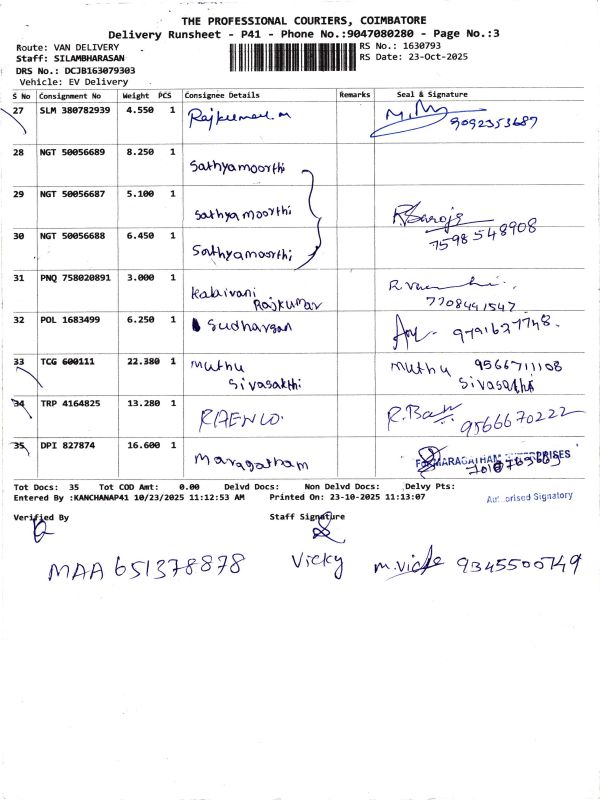 THE PROFESSIONAL COURIERS, COIMBATORE
Delivery Runsheet - P41 - Phone No.:9047080280 - Page No.:3
Route: VAN DELIVERY
RS No.: 1630793
Staff: SILAMBHARASAN
RS Date: 23-Oct-2025
DRS No.: DCJB163079303
Vehicle: EV Delivery
S No Consignment No Weight PCS Consignee Details Remarks Seal & Signature
27 SLM 380782939 4.550 1 Rajkumar.m 9092353687
28 NGT 50056689 8.250 1 Sathyamoorthi
29 NGT 50056687 5.100 1 Sathyamoorthi R Saroja
30 NGT 50056688 6.450 1 Sathyamoorthi 7598548908
31 PNQ 758020891 3.000 1 Kalaivani Rajkumar 7708491547
32 POL 1683499 6.250 1 Sudharsan 9791627748
33 TCG 600111 22.380 1 Muthu Sivasakthi Muthu 9566711108 Sivasakthi
34 TRP 4164825 13.280 1 RAENCO. 9566670222
35 DPI 827874 16.600 1 Maragatham For MARAGATHAM ENTERPRISES
Tot Docs: 35 Tot COD Amt: 0.00 Delvd Docs: Non Delvd Docs: Delvy Pts:
Entered By :KANCHANAP41 10/23/2025 11:12:53 AM Printed On: 23-10-2025 11:13:07
Authorised Signatory
Verified By Staff Signature
MAA 651378878 Vicky 9345500749